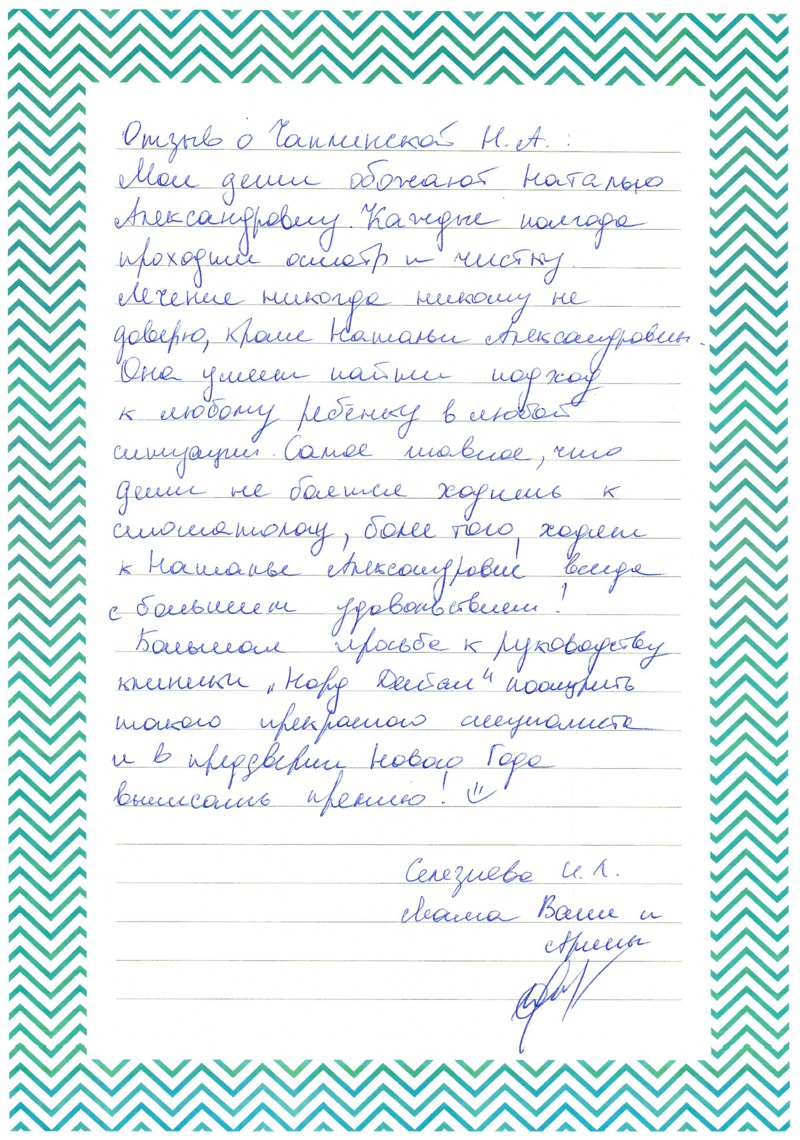 Отзыв о Чаплинской Н.А.:
Мои дети обожают Наталью
Александровну. Каждые полгода
проходим осмотр и чистку.
Лечение никогда никому не
доверю, кроме Натальи Александровны.
Она умеет найти подход
к любому ребёнку в любой
ситуации. Самое главное, что
дети не боятся ходить к
стоматологу, более того, ходят
к Наталье Александровне всегда
с большим удовольствием!
Большая просьба к руководству
клиники „Норд Дентал" поощрить
такого прекрасного специалиста
и в преддверии Нового Года
выписать премию!
Селезнева И.Л.
Мама Вани и
Арины